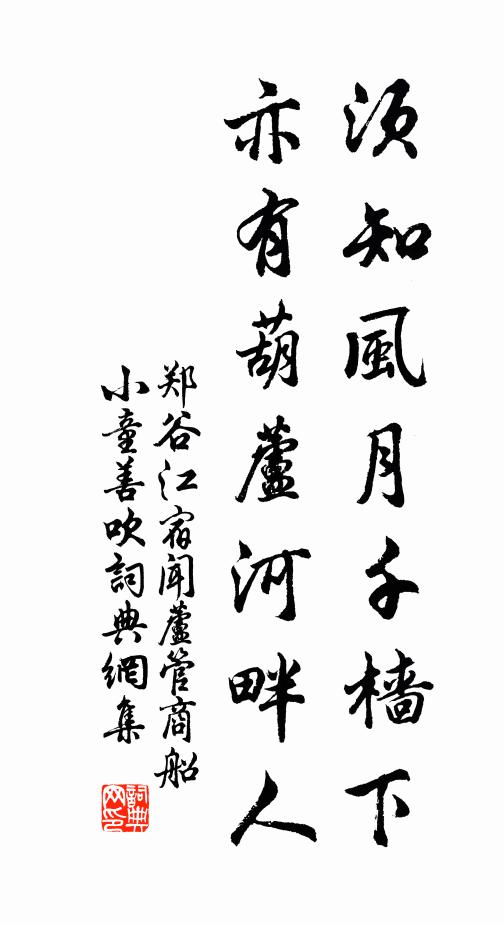 须知風月千檣下
亦有葫蘆河畔人
郑谷江宿闻蘆管商船
小童善吹詞典網集
詞典网印